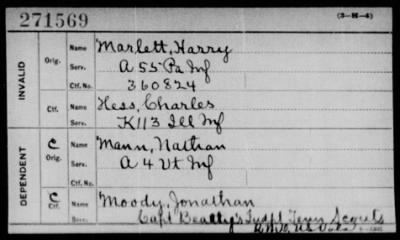 271569
(3-H-4)
INVALID
Orig.
Name Marlett, Harry
Serv. A 55 Pa Inf
Ctf. No. 360824
Ctf.
Name Hess, Charles
Serv. K 113 Ill Inf
DEPENDENT
C
Orig.
Name Mann, Nathan
Serv. A 4 Vt Inf
Ctf. No.
C
Ctf.
Name Moody, Jonathan
Serv. Capt Beatty's Indpt Tenn Scouts